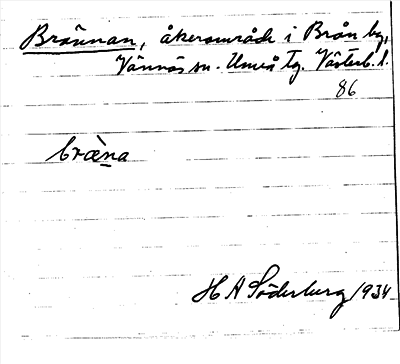 Brännan, åkerområde i Brån by,
Vännäs sn. Umeå tg. Västerb. l.
86
bræ̀na
H A Söderburg 1934